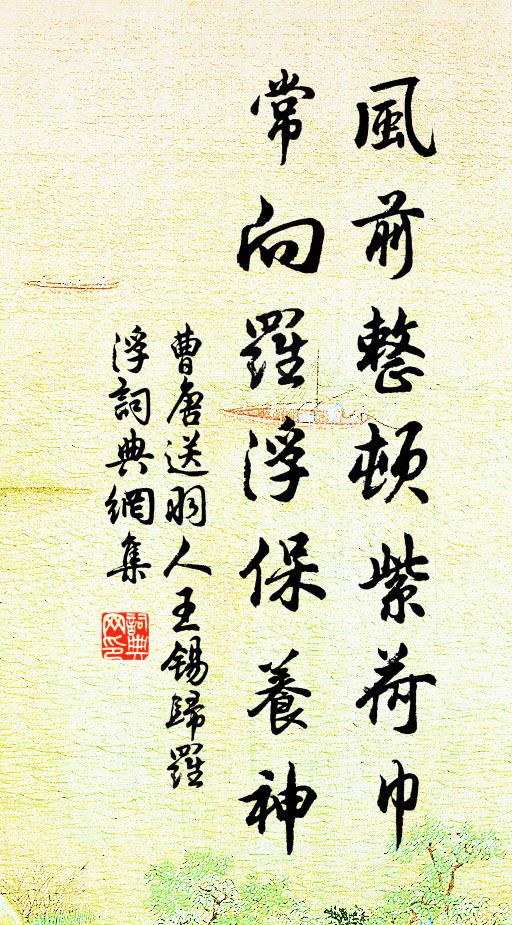 風前整頓紫荷巾
常向羅浮保養神
曹唐送羽人王錫歸羅
浮詞典網集
詞典
网印